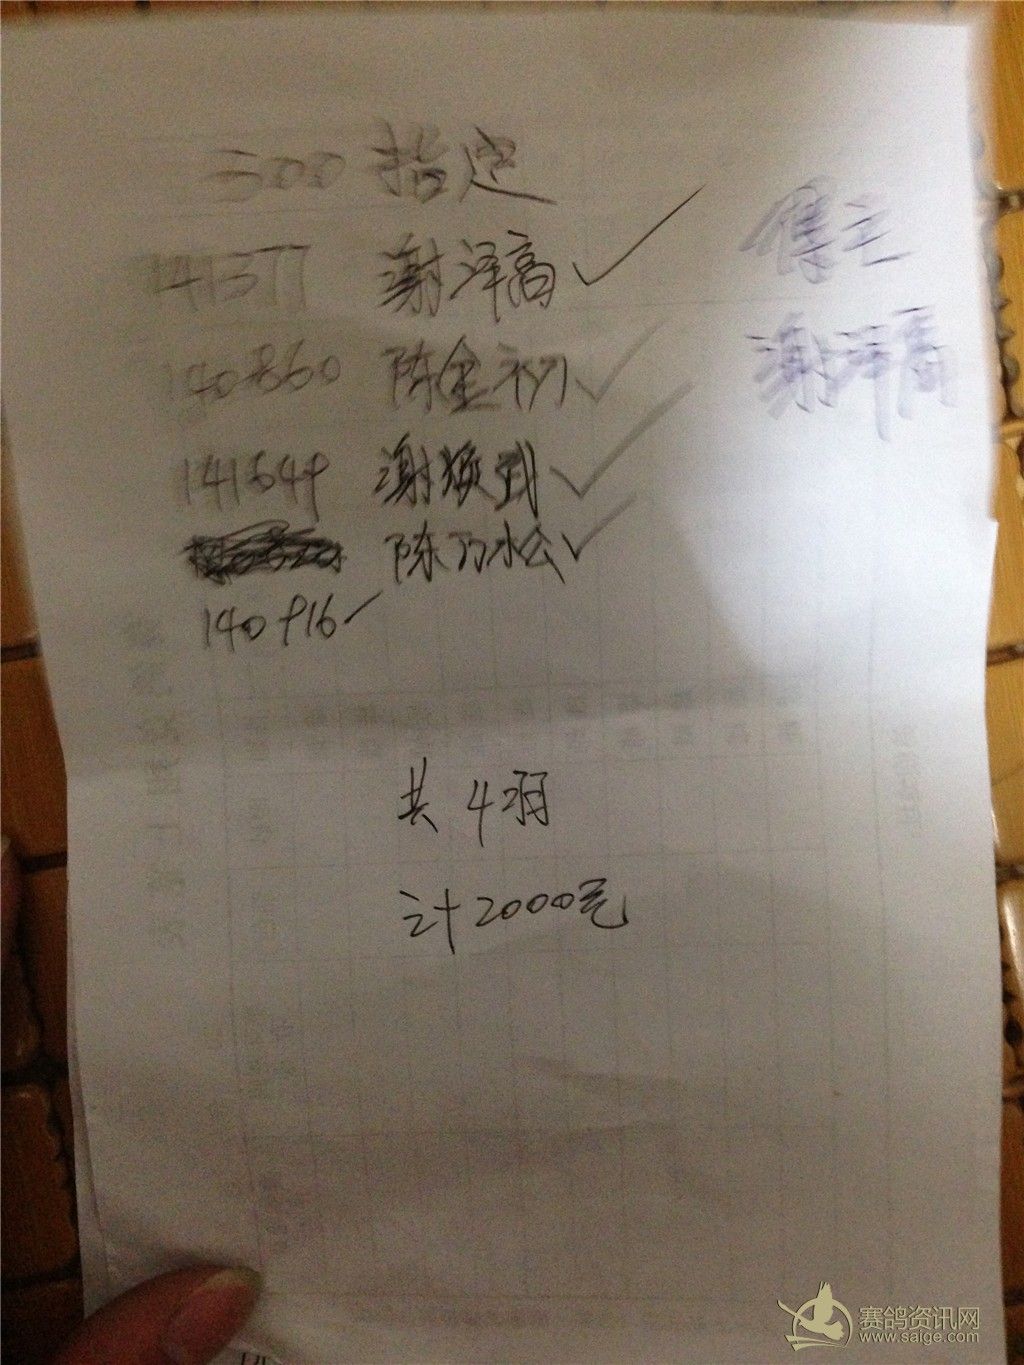 500 指定
141377 谢泽高 ✓
得主
140860 陈金初 ✓
谢泽高
141649 谢焕武 ✓
陈乃松 ✓
140916 ✓
共4羽
计2000元
赛鸽资讯网
www.saige.com